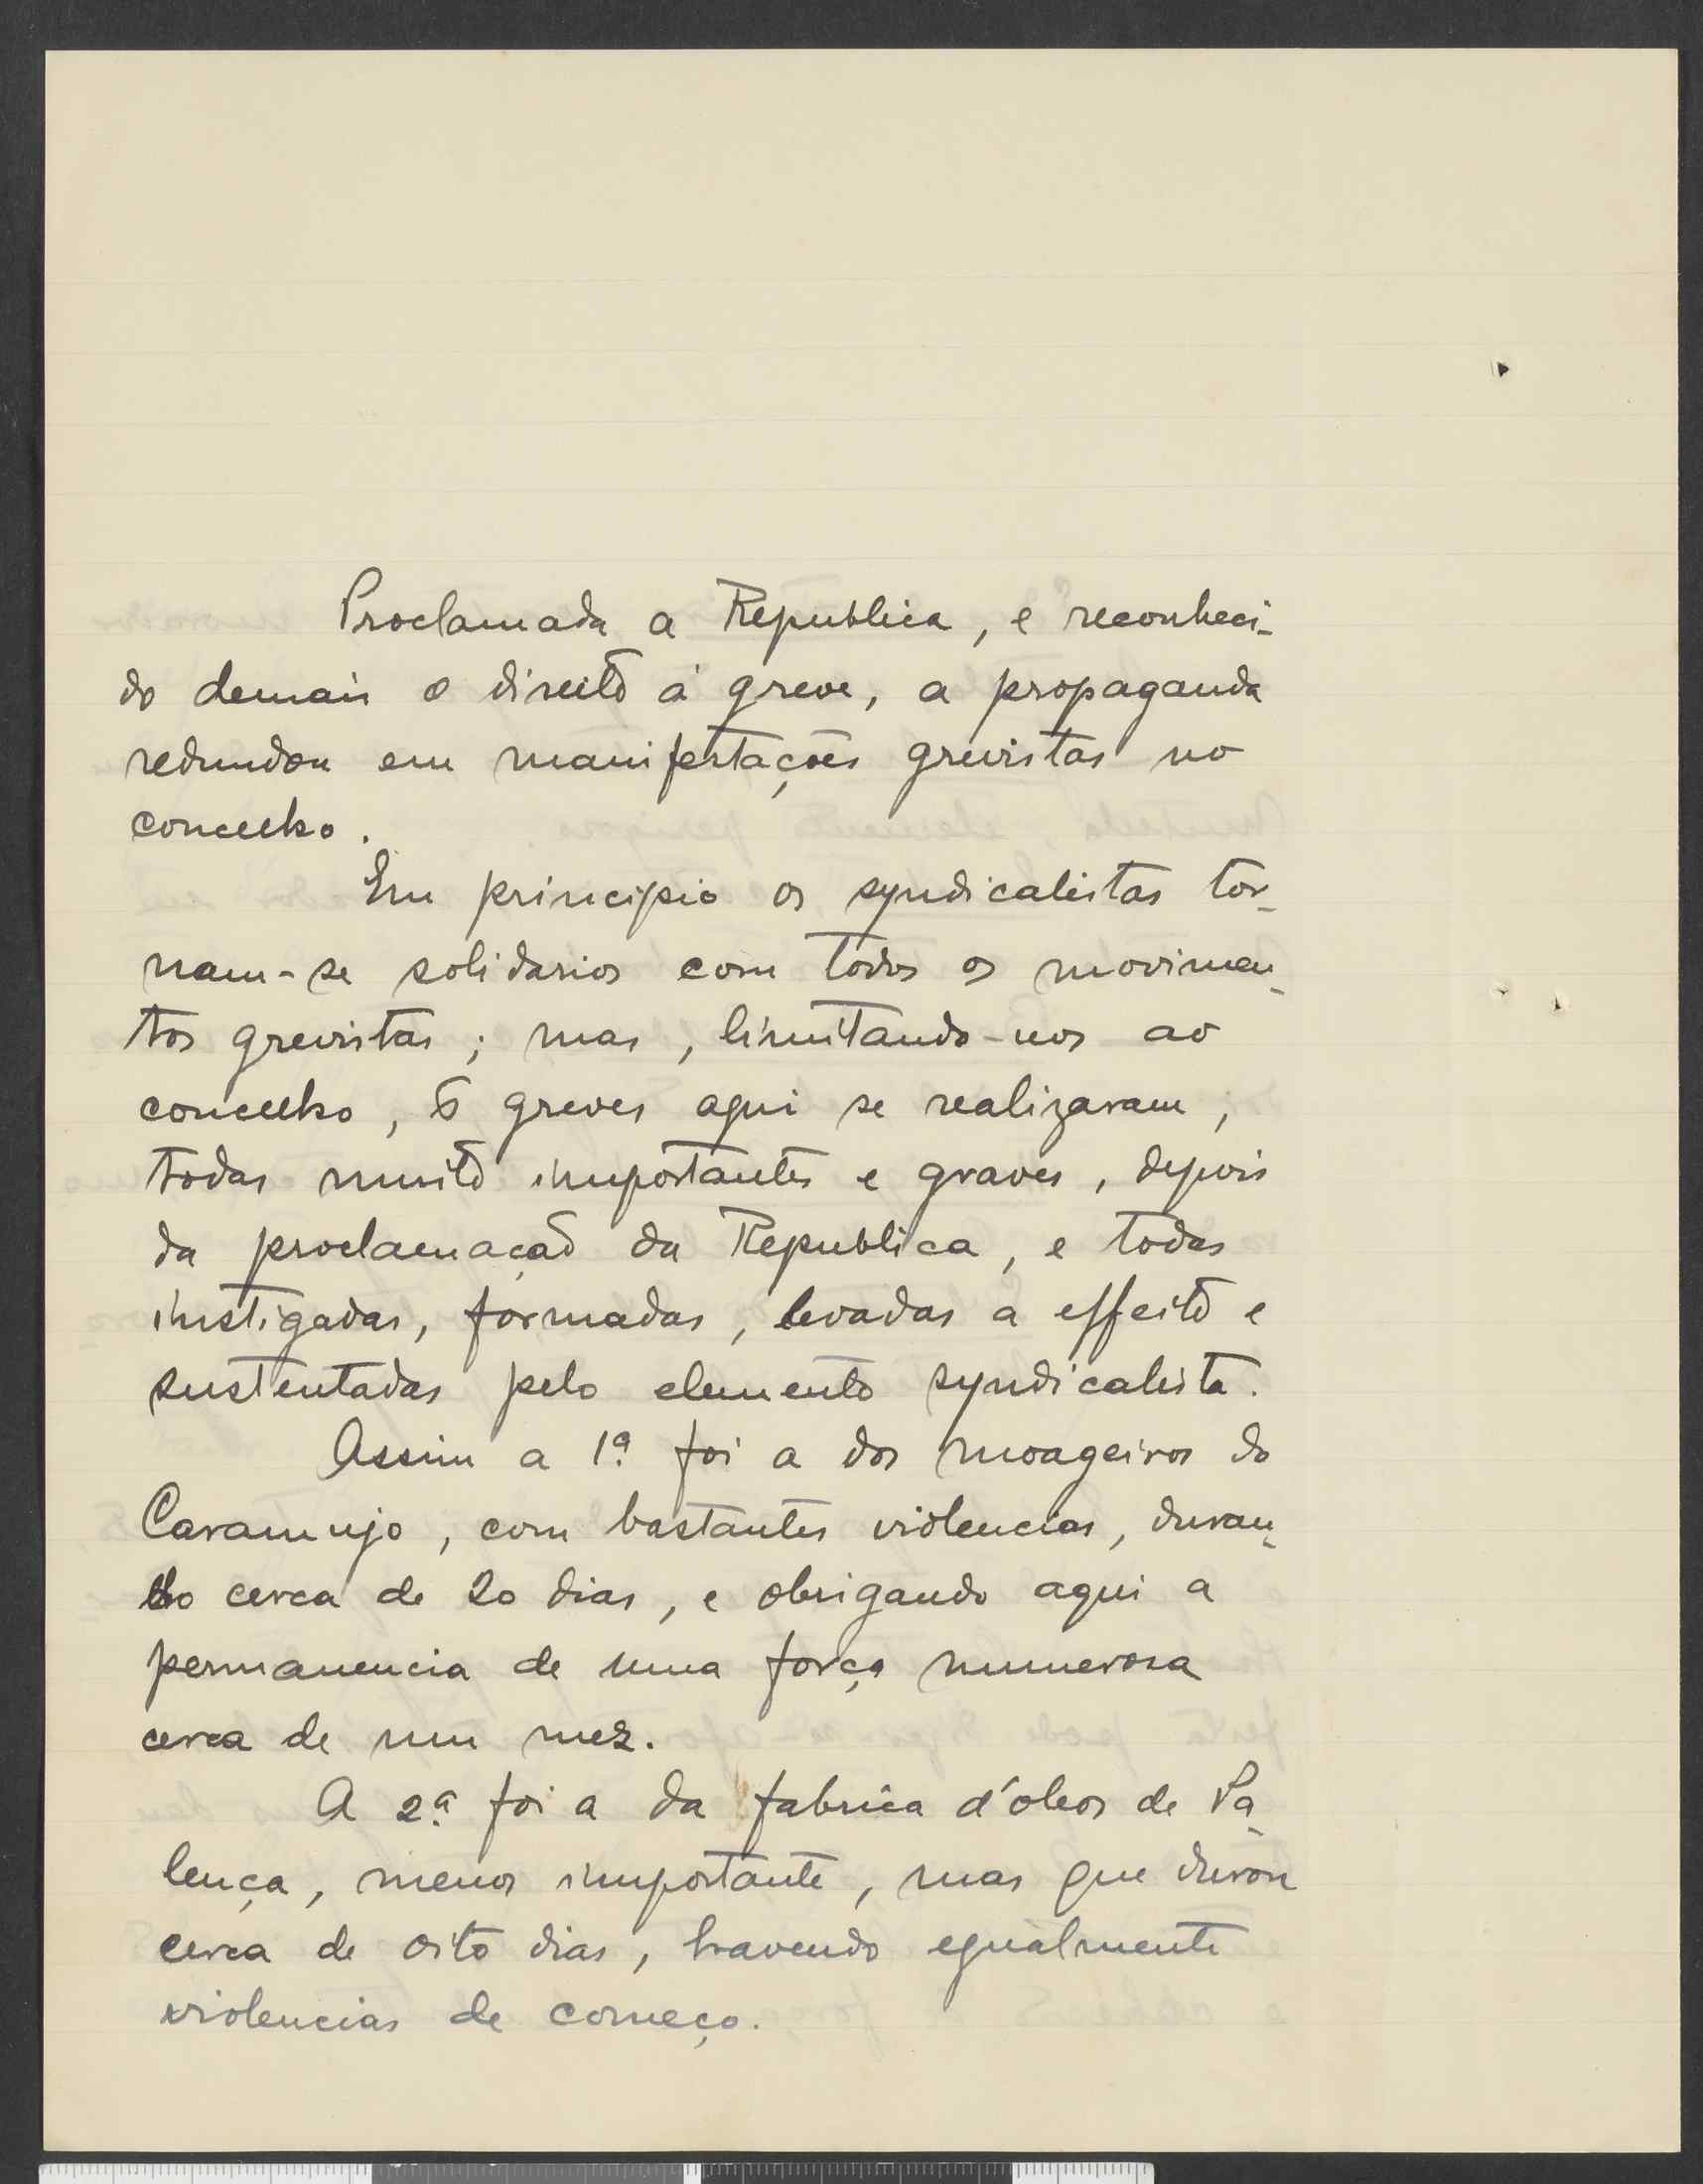 Proclamada a Republica, e reconheci-
do demais o direito á greve, a propaganda
redundou em manifestações grevistas no
concelho.
Em principio os syndicalistas tor-
nam-se solidarios com todos os movimen-
tos grevistas; mas, limitando-nos ao
concelho, 6 greves aqui se realizaram,
todas muito importantes e graves, depois
da proclamação da Republica, e todas
instigadas, formadas, levadas a effeito e
sustentadas pelo elemento syndicalista.
Assim a 1ª foi a dos moageiros do
Caramujo, com bastantes violencias, duran-
do cerca de 20 dias, e obrigando aqui a
permanencia de uma força numerosa
cerca de um mez.
A 2ª foi a da fabrica d'oleos de Pa-
lença, menos importante, mas que durou
cerca de oito dias, havendo egualmente
violencias de começo.